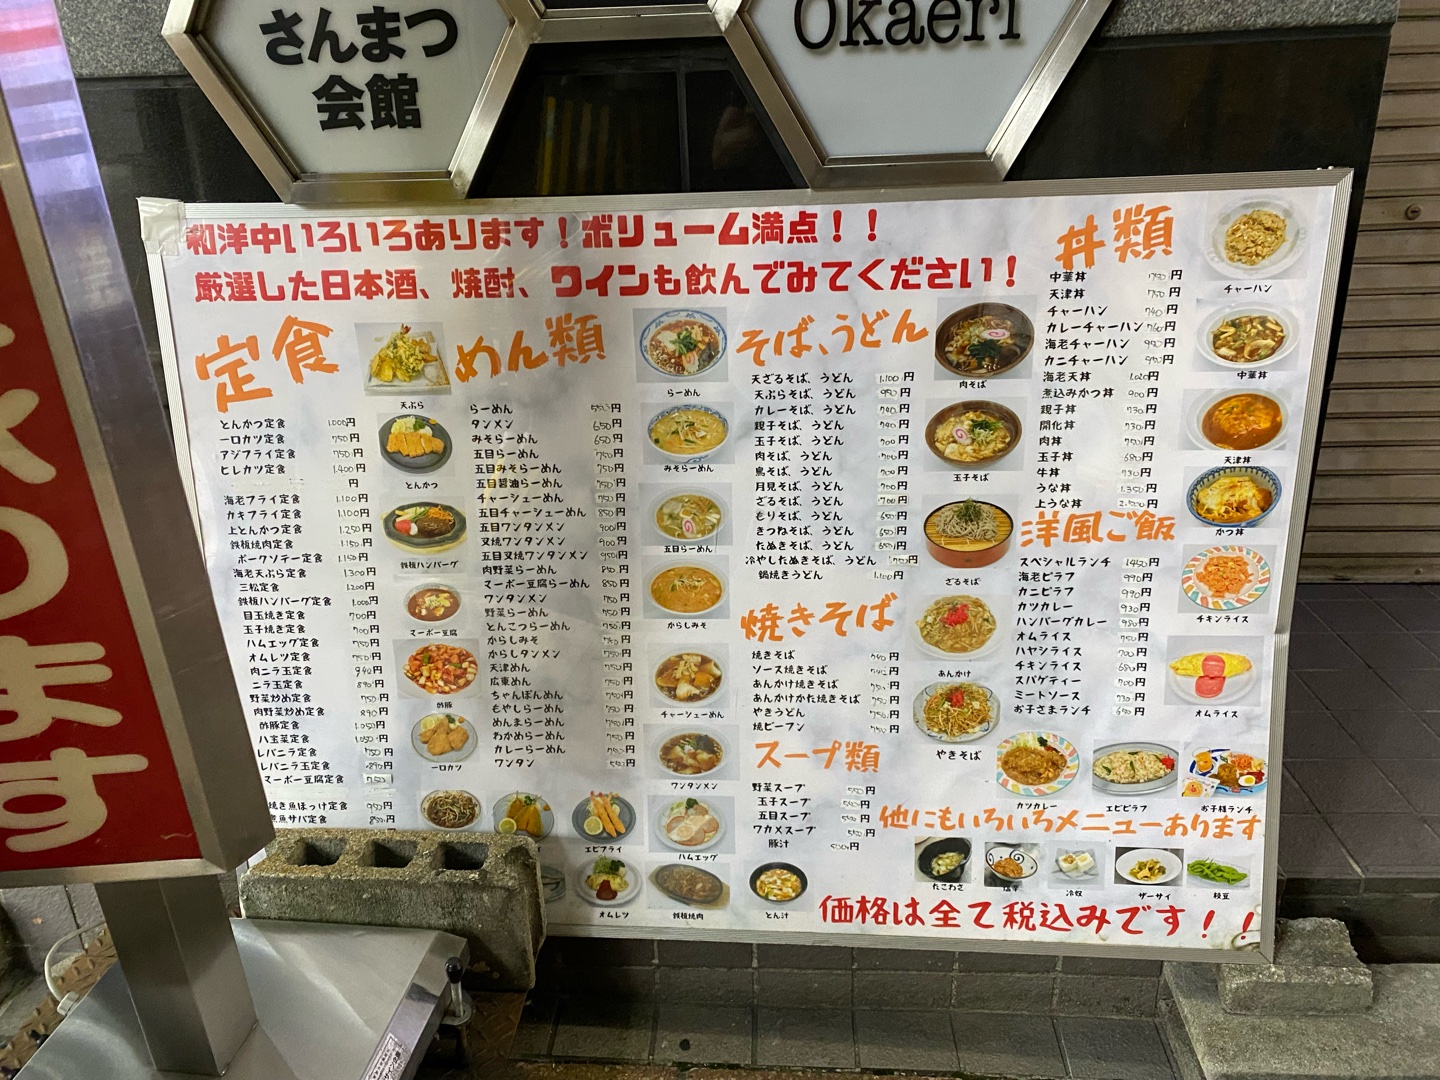 さんまつ
会館
Okaeri
和洋中いろいろあります！ボリューム満点！！
厳選した日本酒、焼酎、ワインも飲んでみてください！
定食
とんかつ定食 1000円
一口カツ定食 750円
アジフライ定食 750円
ヒレカツ定食 1,400円
円
海老フライ定食 1,100円
カキフライ定食 1,100円
上とんかつ定食 1,250円
鉄板焼肉定食 1,150円
ポークソテー定食 1,150円
海老天ぷら定食 1300円
三松定食 1200円
鉄板ハンバーグ定食 1,000円
目玉焼き定食 700円
玉子焼き定食 700円
ハムエッグ定食 750円
オムレツ定食 750円
肉ニラ玉定食 940円
ニラ玉定食 890円
野菜炒め定食 750円
肉野菜炒め定食 890円
酢豚定食 1,050円
八宝菜定食 1,050円
レバニラ定食 750円
レバニラ玉定食 890円
マーボー豆腐定食 750
焼き魚ほっけ定食 950円
煮魚サバ定食
天ぷら
とんかつ
鉄板ハンバーグ
マーボー豆腐
酢豚
一口カツ
エビフライ
オムレツ
めん類
らーめん 550円
タンメン 650円
みそらーめん 650円
五目らーめん 750円
五目みそらーめん 750円
五目醤油らーめん 750円
チャーシューめん 750円
五目チャーシューめん 850円
五目ワンタンメン 900円
叉焼ワンタンメン 900円
五目叉焼ワンタンメン 950円
肉野菜らーめん 850円
マーボー豆腐らーめん 850円
ワンタンメン 750円
野菜らーめん 750円
とんこつらーめん 750円
からしみそ 円
からしタンメン 750円
天津めん 750円
広東めん 750円
ちゃんぽんめん 750円
もやしらーめん 750円
めんまらーめん 750円
わかめらーめん 750円
カレーらーめん 円
ワンタン 円
らーめん
みそらーめん
五目らーめん
からしみそ
チャーシューめん
ワンタンメン
ハムエッグ
鉄板焼肉
そば、うどん
天ざるそば、うどん 1,100円
天ぷらそば、うどん 950円
カレーそば、うどん 740円
親子そば、うどん 740円
玉子そば、うどん 円
肉そば、うどん 700円
鳥そば、うどん 700円
月見そば、うどん 700円
ざるそば、うどん 700円
もりそば、うどん 650円
きつねそば、うどん 650円
たぬきそば、うどん 650円
冷やしたぬきそば、うどん 750円
鍋焼きうどん 1,100円
肉そば
玉子そば
ざるそば
あんかけ
やきそば
焼きそば
焼きそば 円
ソース焼きそば 円
あんかけ焼きそば 750円
あんかけかた焼きそば 750円
やきうどん 750円
焼ビーフン 750円
スープ類
野菜スープ 550円
玉子スープ 円
五目スープ 円
ワカメスープ 550円
豚汁 円
とん汁
丼類
中華丼 750円
天津丼 750円
チャーハン 740円
カレーチャーハン 760円
海老チャーハン 990円
カニチャーハン 円
海老天丼 1,020円
煮込みかつ丼 900円
親子丼 730円
開化丼 730円
肉丼 750円
玉子丼 680円
牛丼 730円
うな丼 1,350円
上うな丼 円
チャーハン
中華丼
天津丼
かつ丼
洋風ご飯
スペシャルランチ 1450円
海老ピラフ 990円
カニピラフ 990円
カツカレー 930円
ハンバーグカレー 980円
オムライス 750円
ハヤシライス 700円
チキンライス 680円
スパゲティー 700円
ミートソース 730円
お子さまランチ 680円
チキンライス
オムライス
カツカレー
エビピラフ
お子様ランチ
他にもいろいろメニューあります
たこわさ
塩辛
冷奴
ザーサイ
枝豆
価格は全て税込みです！！
ます